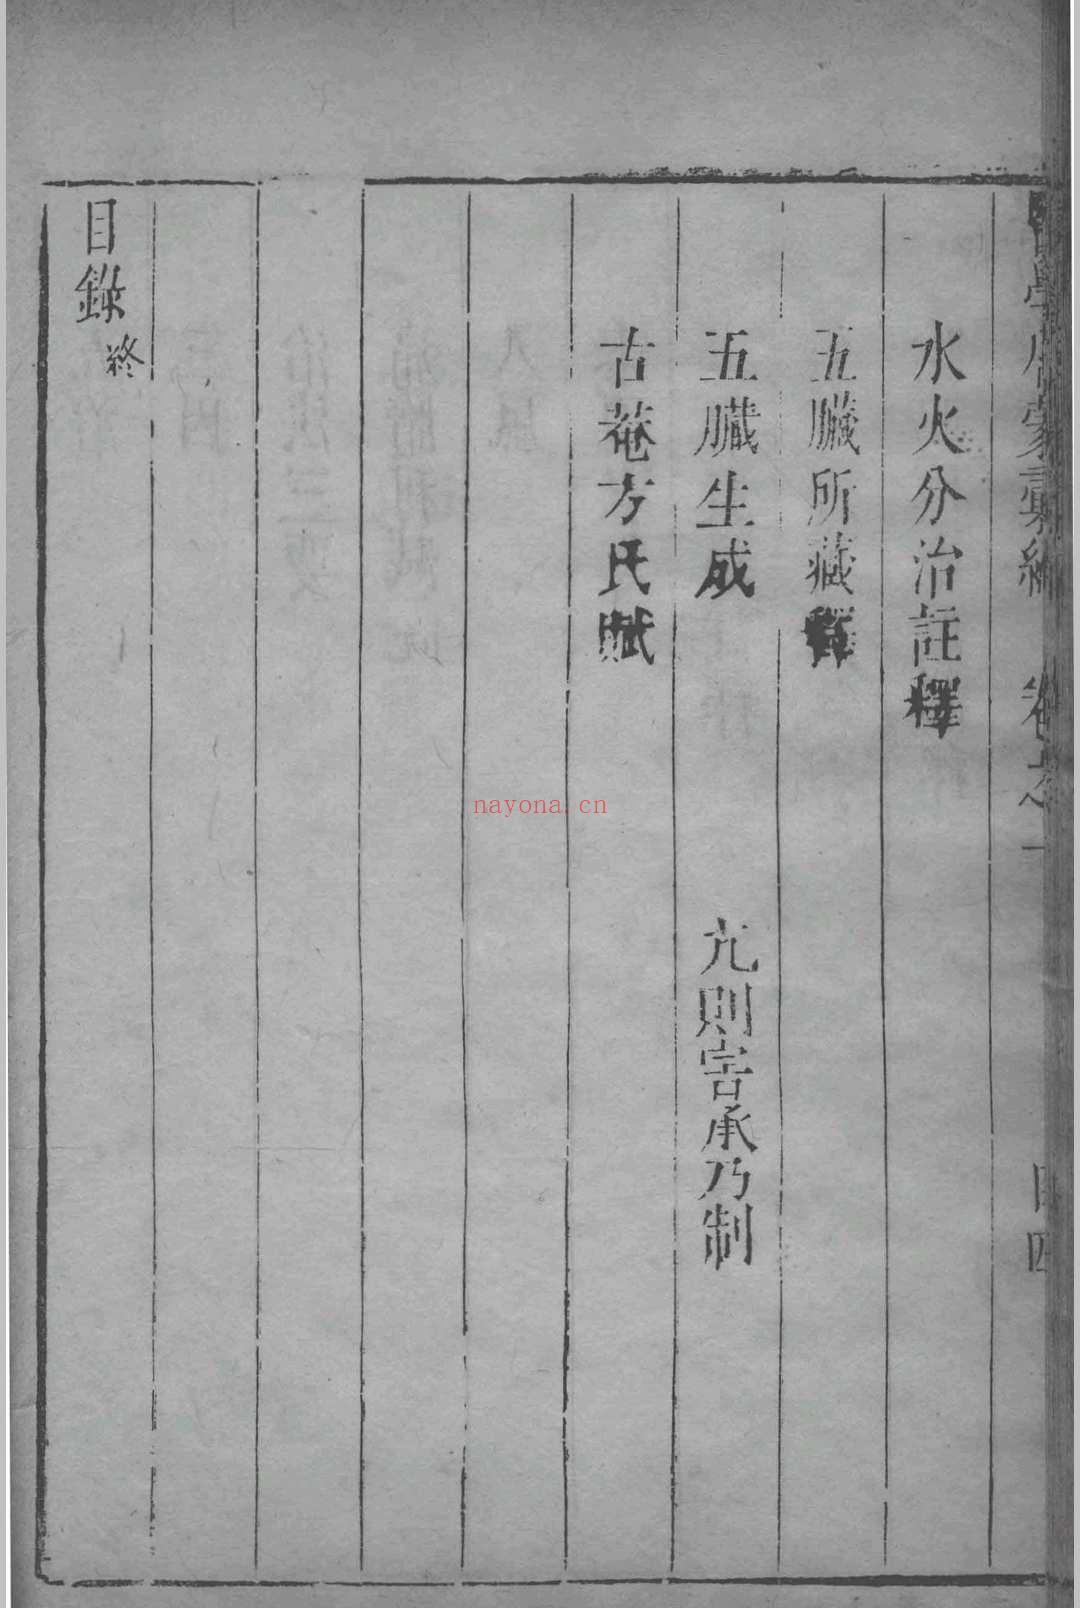 醫學啓蒙彙編 卷之一 目四
水火分治註釋
五臟所藏釋
五臟生成 亢則害承乃制
古菴方氏賦
目錄終
nayona.cn